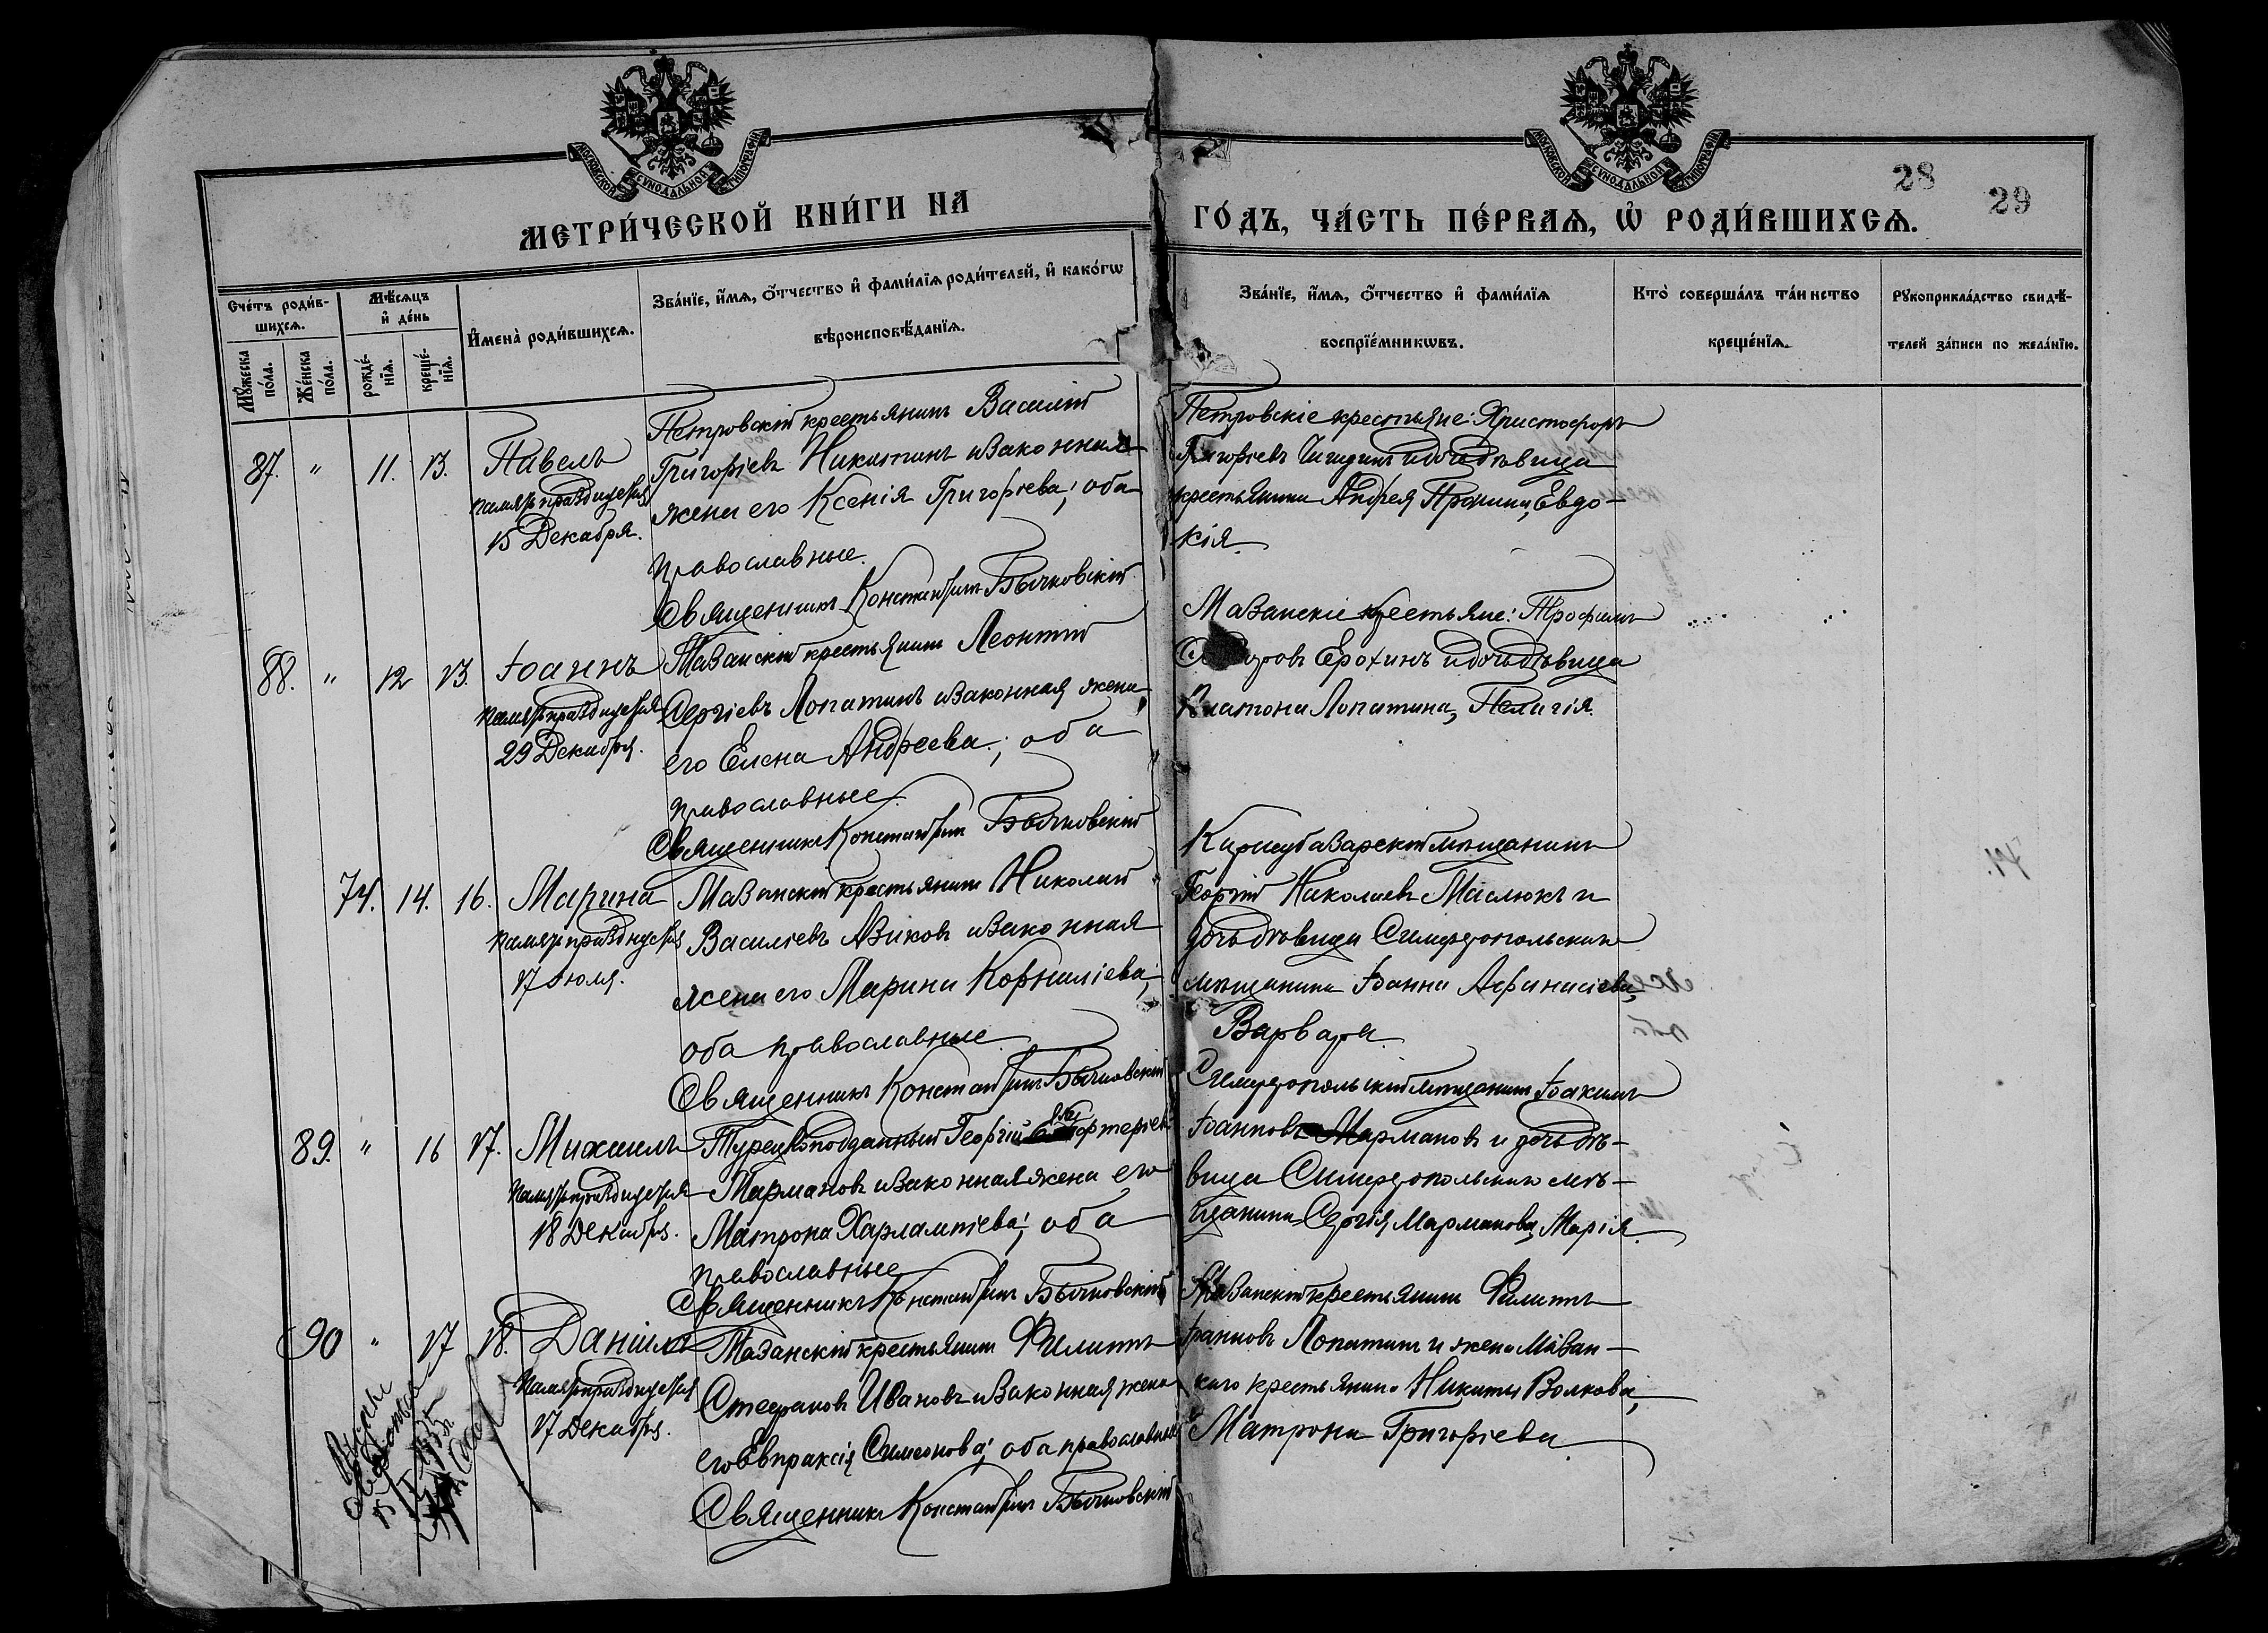 МОСКОВСКОЙ СѴНОДАЛЬНОЙ ТИПОГРАФІИ
МОСКОВСКОЙ СѴНОДАЛЬНОЙ ТИПОГРАФІИ
28
29
МЕТРИ́ЧЕСКОЙ КНИ́ГИ НА
ГО́ДЪ, ЧА́СТЬ ПЕ́РВАѦ, Ѡ҆ РОДИ́ВШИХСѦ.
Сче́тъ роди́в-
шихсѧ.
Мѣ́сѧцъ
и҆ де́нь
Мꙋ́жеска
по́ла.
Же́нска
по́ла.
рожде́-
нїѧ.
креще́-
нїѧ.
И҆мена̀ роди́вшихсѧ.
Зва́нїе, и҆́мѧ, ѻ҆́тчество и҆ фами́лїѧ роди́телей, и҆ како́гѡ
вѣроисповѣ́данїѧ.
Зва́нїе, и҆́мѧ, ѻ҆́тчество и҆ фами́лїѧ
воспрїе́мникѡвъ.
Кто̀ соверша́лъ та́инство
креще́нїѧ.
Рꙋкоприкла́дство свидѣ́-
телей за́писи по жела́нїю.
87. " 11. 13. Павелъ
память празднуется
15 Декабря.
Петровскій крестьянинъ Василій
Григоріевъ Никитинъ и законная
жена его Ксенія Григоріева; оба
православные.
Священникъ Константинъ Бычковскій
Петровскіе крестьяне: Христофоръ
Григорьевъ Чигринъ и дочь дѣвица
крестьянина Андрея Пронина, Евдо-
кія.
88. " 12 13. Іоаннъ
память празднуется
29 Декабря.
Мазанскій крестьянинъ Леонтій
Сергіевъ Лопатинъ и законная жена
его Елена Андреева; оба
православные.
Священникъ Константинъ Бычковскій
Мазанскіе крестьяне: Трофимъ
Ерохинъ и дочь дѣвица
Платона Лопатина, Пелагія.
74. 14. 16. Марина
память празднуется
17 Іюля.
Мазанскій крестьянинъ Николай
Василіевъ Азиковъ и законная
жена его Марина Корниліева;
оба православные
Священникъ Константинъ Бычковскій
Карасубазарскій мѣщанинъ
Георгій Николаевъ Маслюкъ и
дочь дѣвица Симферопольскаго
мѣщанина Іоанна Афанасіева,
Варвара.
89. " 16 17. Михаилъ
память празднуется
18 Декабря.
Турецкоподданный Георгій
Мармановъ и законная жена его
Матрона Харлампіева; оба
православные
Священникъ Константинъ Бычковскій
Симферопольскій мѣщанинъ Іоакимъ
Іоанновъ Мармановъ и дочь дѣ-
вица Симферопольскаго мѣ-
щанина Сергія Марманова, Марія.
90 " 17 18. Даніилъ
память празднуется
17 Декабря.
Мазанскій крестьянинъ Филиппъ
Стефановъ Ивановъ и законная жена
его Евпраксія Симеонова; оба православные
Священникъ Константинъ Бычковскій
Мазанскій крестьянинъ Филиппъ
Іоанновъ Лопатинъ и жена Мазан-
скаго крестьянина Никиты Волкова,
Матрона Григоріева.